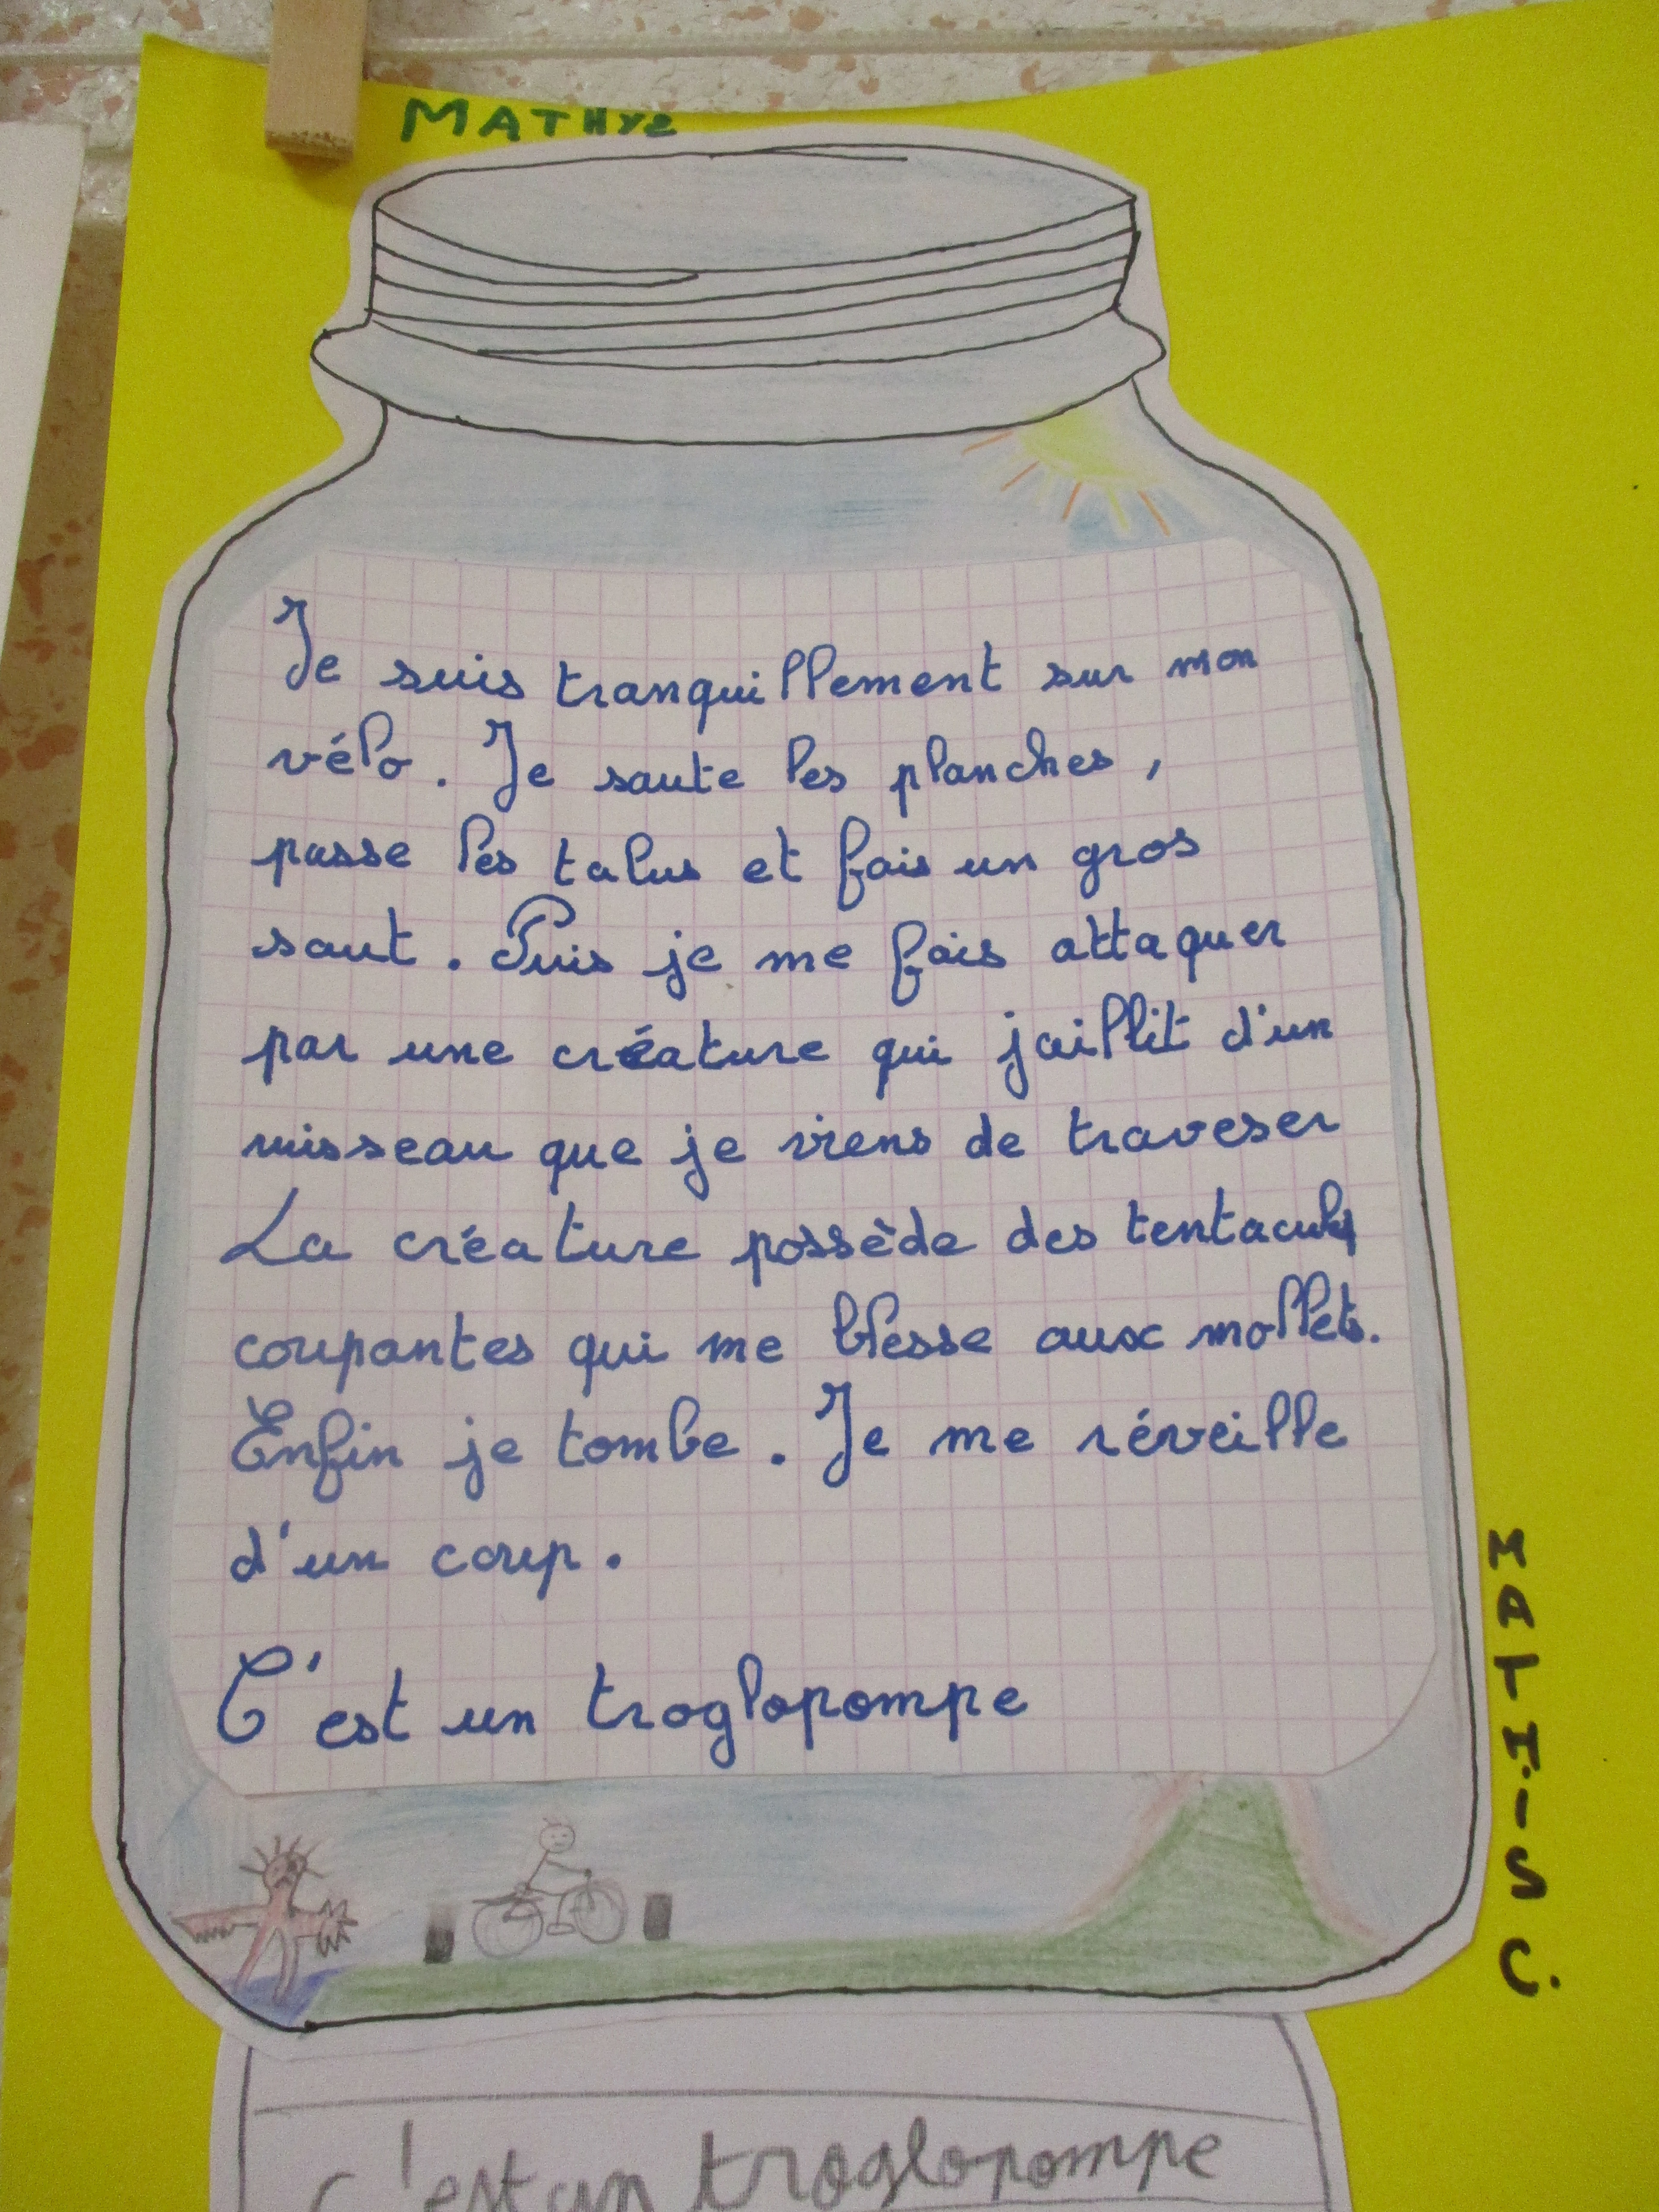 MATHYS
Je suis tranquillement sur mon
vélo. Je saute les planches,
passe les talus et fais un gros
saut. Puis je me fais attaquer
par une créature qui jaillit d'un
ruisseau que je viens de traveser
La créature possède des tentacules
coupantes qui me blesse aux mollets.
Enfin je tombe. Je me réveille
d'un coup.
C'est un troglopompe
MATHIS C.
c'est un troglopompe